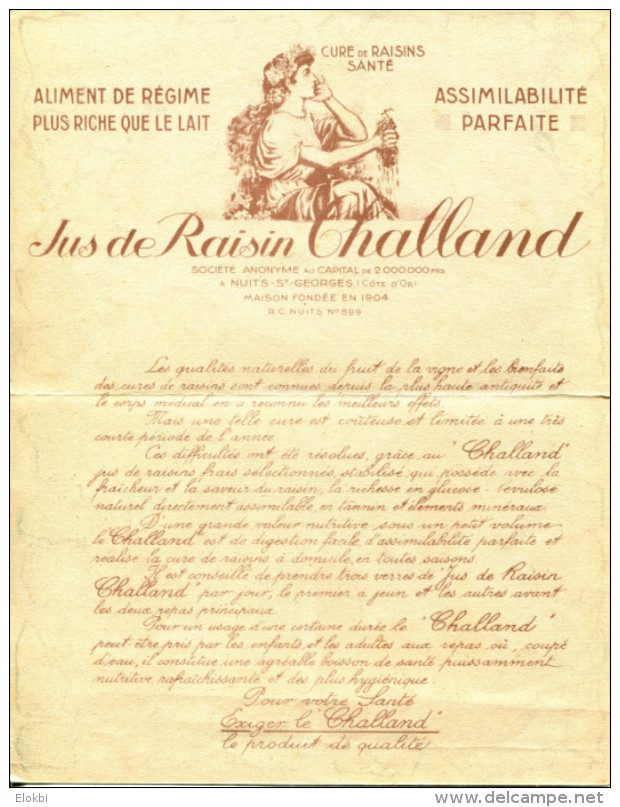 CURE DE RAISINS
SANTÉ
ALIMENT DE RÉGIME
PLUS RICHE QUE LE LAIT
ASSIMILABILITÉ
PARFAITE
Jus de Raisin Challand
SOCIÉTÉ ANONYME AU CAPITAL DE 2.000.000 FRS
A NUITS-ST-GEORGES (CÔTE-D'OR)
MAISON FONDÉE EN 1904
R.C. NUITS No 899
Les qualités naturelles du fruit de la vigne et les bienfaits
des cures de raisins sont connues depuis la plus haute antiquité et
le corps médical en a reconnu les meilleurs effets.
Mais une telle cure est coûteuse et limitée à une très
courte période de l'année.
Ces difficultés ont été résolues, grâce au "Challand"
jus de raisins frais sélectionnés, stabilisé qui possède avec la
fraîcheur et la saveur du raisin, la richesse en glucose-lévulose
naturel directement assimilable, en tannin et éléments minéraux.
D'une grande valeur nutritive sous un petit volume
le "Challand" est de digestion facile, d'assimilabilité parfaite et
réalise la cure de raisins à domicile, en toutes saisons.
Il est conseillé de prendre trois verres de "Jus de Raisin
Challand" par jour, le premier à jeun et les autres avant
les deux repas principaux.
Pour un usage d'une certaine durée le "Challand"
peut être pris par les enfants et les adultes aux repas où, coupé
d'eau, il constitue une agréable boisson de santé puissamment
nutritive, rafraîchissante et des plus hygiénique.
Pour votre Santé
Exiger le "Challand"
le produit de qualité
Elokbi
www.delcampe.net